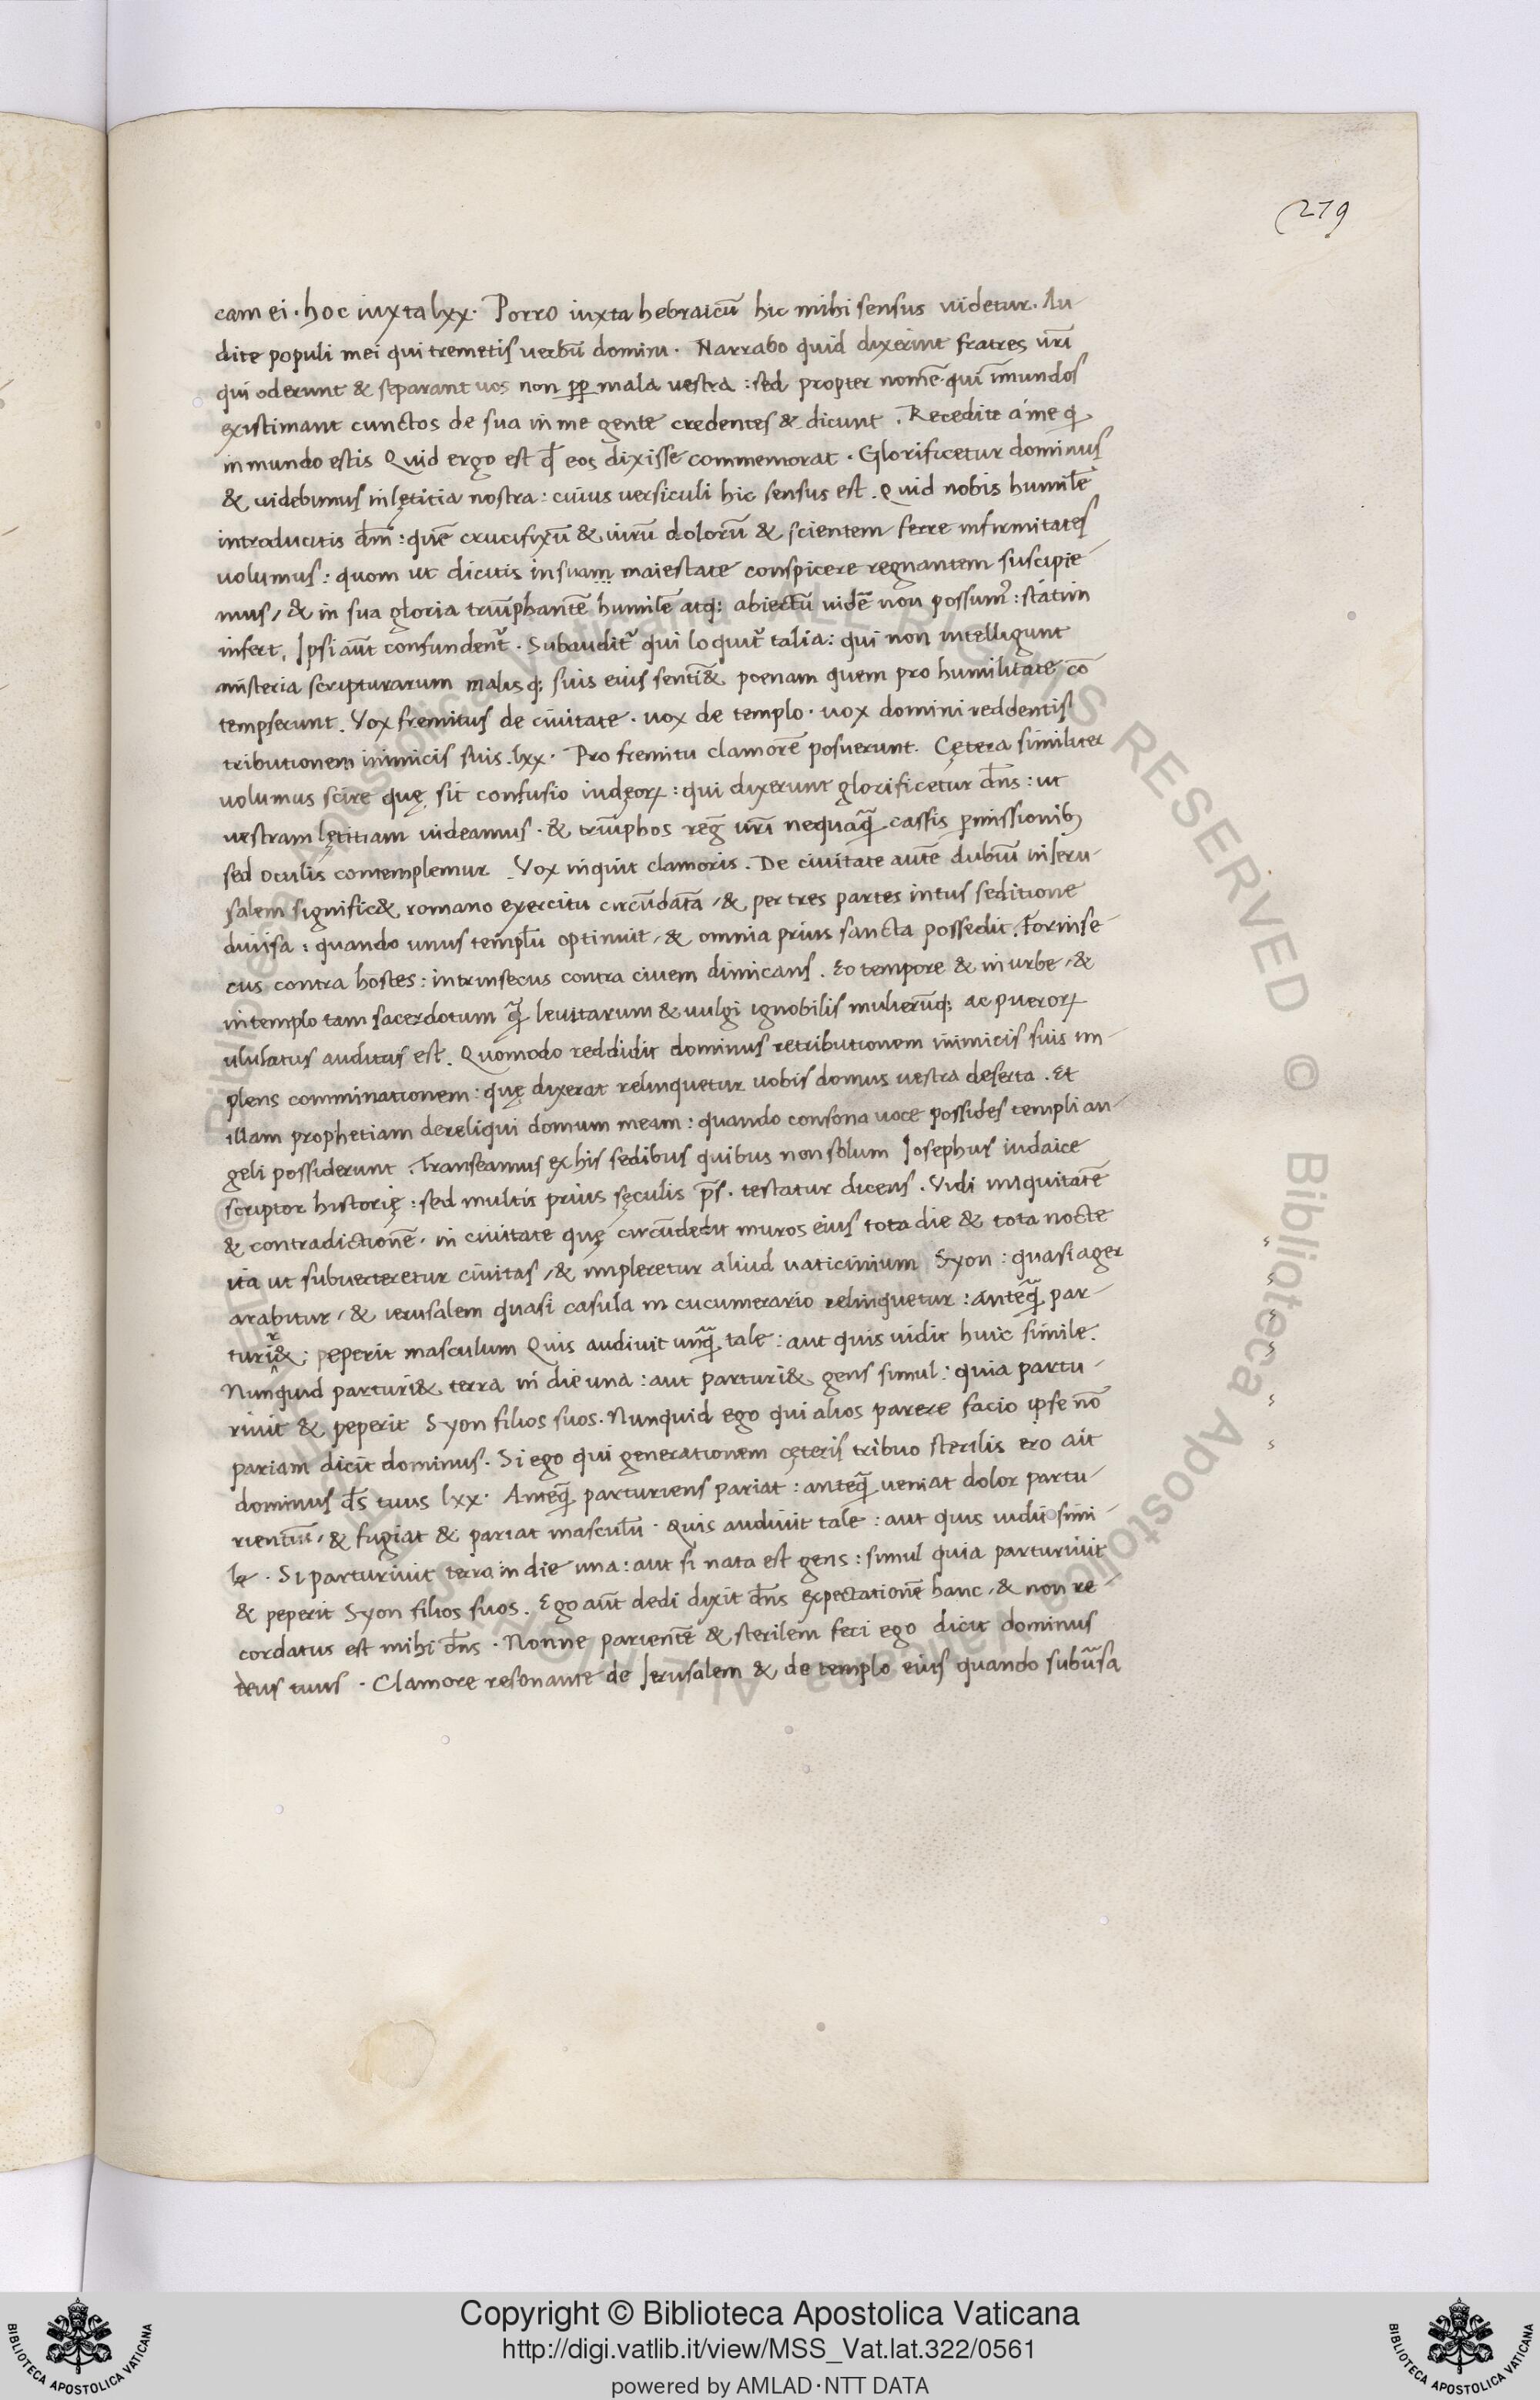 279
cam ei · hoc iuxta lxx · Porro iuxta hebraicū hic mihi sensus videtur . Au-
dite populi mei qui tremetis uerbū domini · Narrabo quid dixerint fratres ur̄i
qui oderunt & separant uos non pp mala uestra : sed propter nomē · qui īmundos
existimant cunctos de sua in me gente credentes & dicunt . Recedite a me q
inmundo estis Quid ergo est qđ eos dixisse commemorat · Glorificetur dominus
& uidebimus in lętitia nostra : cuius uersiculi hic sensus est . Quid nobis humilē
introducitis dm̄ : quē crucifixū & uirū dolorū & scientem ferre infirmitates
uolumus : quom ut dicitis in suam maiestate conspicere regnantem suscipie-
mus , & in sua gloria triūphantē humilē atq; abiectū uidē non possum9 : statim
infert . Ipsi aūt confundent᷑ . Subaudit᷑ qui loquit᷑ talia : qui non intelligunt
misteria scripturarum malisq; suis eius senti& poenam quem pro humilitate cō
tempserunt . Vox fremitus de ciuitate · uox de templo · uox domini reddentis
tributionem inimicis suis . lxx · Pro fremitu clamorē posuerunt . Cętera similiter
uolumus scire quę sit confusio iudęoꝝ : qui dixerunt glorificetur dn̄s : ut
uestram lętitiam uideamus · & triūphos reg̅ ur̄i nequaꝗ̃ cassis ꝑmissionib;
sed oculis contemplemur . Vox inquit clamoris . De ciuitate autē dubiū in Ieru-
salem signific& romano exercitu circūdata , & per tres partes intus seditione
diuisa : quando unus templū optinuit , & omnia prius sancta possedit . Forinse-
cus contra hostes : intrinsecus contra ciuem dimicans . Eo tempore & in urbe , &
in templo tam sacerdotum ꝗ̃ leuitarum & uulgi ignobilis mulierūq; ac pueroꝝ
ululatus auditus est . Quomodo reddidit dominus retributionem inimicis suis im-
plens comminationem : quę dixerat relinquetur uobis domus uestra deserta . Et
illam prophetiam dereliqui domum meam : quando consona uoce possides templi an-
geli possiderunt . Transeamus ex his sedibus quibus non solum Iosephus iudaice
scriptor historię : sed multis prius sęculis ps̄ . testatur dicens . Vidi iniquitatē
& contradictionē . in ciuitate quę circūdedit muros eius tota die & tota nocte
ita ut subuerteretur ciuitas , & impleretur aliud uaticinium Syon : quasi ager
arabitur , & ierusalem quasi casula in cucumerario relinquetur : anteꝗ̃ par-
turir& ; peperit masculum Quis audiuit unꝗ̃ tale : aut quis uidit huic simile .
Nunquid parturi& terra in die una : aut parturi& gens simul : quia partu-
riuit & peperit Syon filios suos . Nunquid ego qui alios parere facio ipse nō
pariam dicit dominus . Si ego qui generationem cęteris tribuo sterilis ero ait
dominus ds̄ tuus lxx · Anteꝗ̃ parturiens pariat : anteꝗ̃ ueniat dolor partu-
rientiū , & fugiat & pariat masculū · Quis audiuit tale : aut quis uidit simi-
le . Si parturiuit terra in die una : aut si nata est gens : simul quia parturiuit
& peperit Syon filios suos . Ego aūt dedi dixit dn̄s expectationē hanc , & non re-
cordatus est mihi dn̄s . Nonne parientē & sterilem feci ego dicit dominus
deus tuus . Clamore resonante de Ierusalem & de templo eius quando subūsa
© Biblioteca Apostolica Vaticana ALL RIGHTS RESERVED
Copyright © Biblioteca Apostolica Vaticana
http://digi.vatlib.it/view/MSS_Vat.lat.322/0561
powered by AMLAD·NTT DATA
BIBLIOTECA APOSTOLICA VATICANA
BIBLIOTECA APOSTOLICA VATICANA